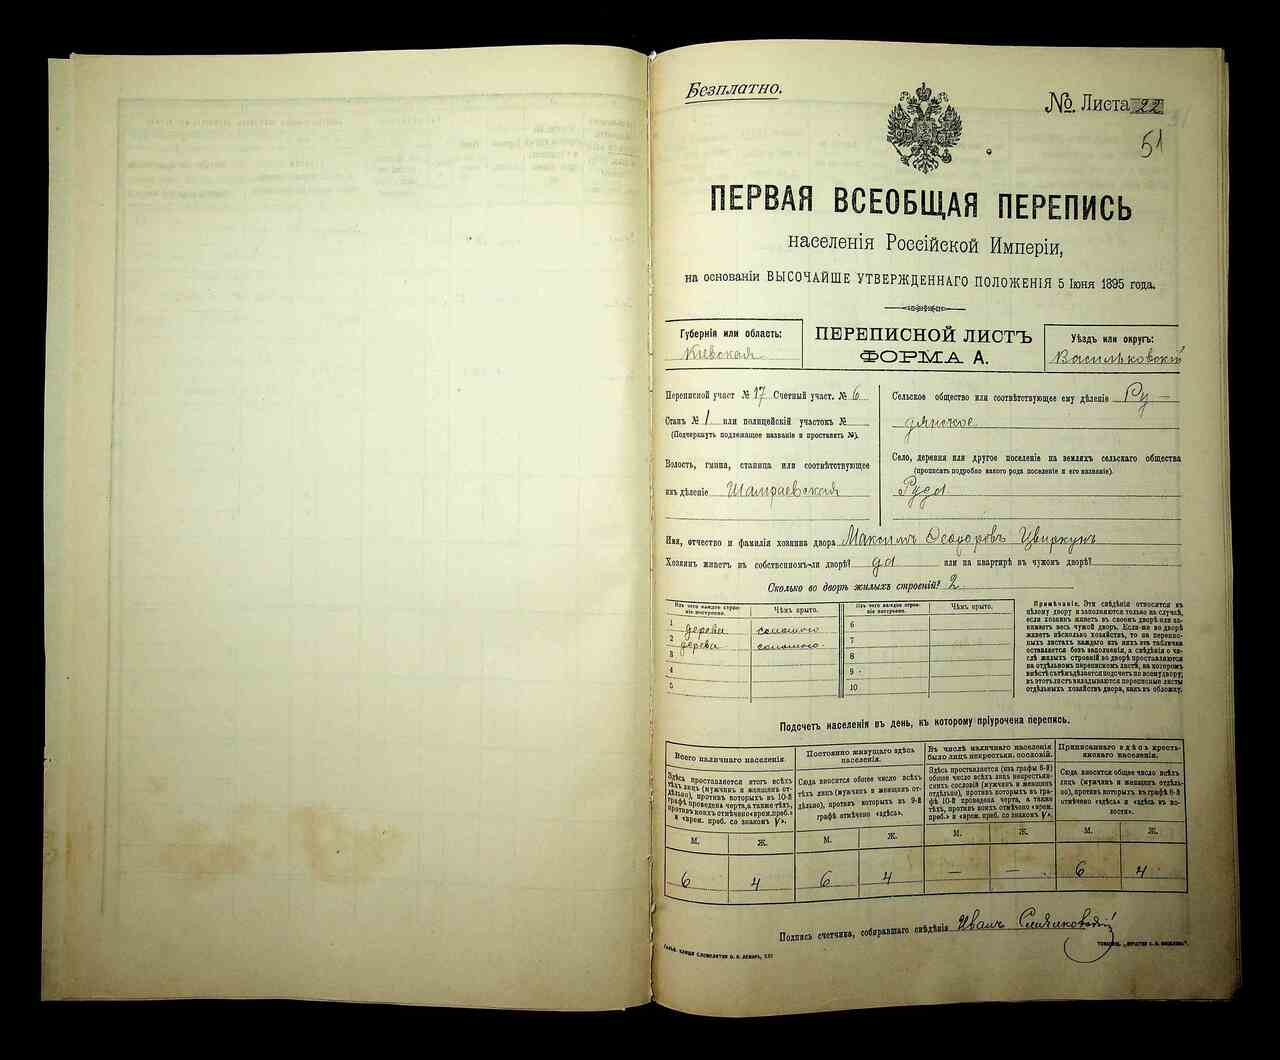 Безплатно.
№ Листа 22
51
ПЕРВАЯ ВСЕОБЩАЯ ПЕРЕПИСЬ
населенія Россійской Имперіи,
на основаніи ВЫСОЧАЙШЕ УТВЕРЖДЕННАГО ПОЛОЖЕНІЯ 5 Іюня 1895 года.
Губернія или область:
Кіевская
ПЕРЕПИСНОЙ ЛИСТЪ
ФОРМА А.
Уѣздъ или округъ:
Васильковскій
Переписной участ № 17 Счетный участ. № 6
Станъ № 1 или полицейскій участокъ №
(Подчеркнуть подлежащее названіе и проставить №).
Волость, гмина, станица или соотвѣтствующее
имъ дѣленіе Шамраевская
Сельское общество или соотвѣтствующее ему дѣленіе Ру-
дянское
Село, деревня или другое поселеніе на земляхъ сельскаго общества
(прописать подробно какого рода поселеніе и его названіе).
Руда
Имя, отчество и фамилія хозяина двора Максимъ Ѳеодоровъ Цвиркунъ
Хозяинъ живетъ въ собственномъ-ли дворѣ? да или на квартирѣ въ чужомъ дворѣ?
Сколько во дворѣ жилыхъ строеній? 2
Изъ чего каждое строе-
ніе построено.
Чѣмъ крыто.
1 дерева соломою
2 дерева соломою.
3
4
5
Изъ чего каждое строе-
ніе построено.
Чѣмъ крыто.
6
7
8
9
10
Примѣчаніе. Эти свѣдѣнія относятся къ
цѣлому двору и заполняются только на случай,
если хозяинъ живетъ въ своемъ дворѣ или за-
нимаетъ весь чужой дворъ. Если-же во дворѣ
живетъ нѣсколько хозяйствъ, то на перепис-
ныхъ листахъ каждаго изъ нихъ эта табличка
оставляется безъ заполненія, а свѣдѣнія о чи-
слѣ жилыхъ строеній во дворѣ проставляются
на отдѣльномъ переписномъ листѣ, на которомъ
вмѣстѣ съ тѣмъ дѣлается подсчетъ по всему двору;
въ этотъ листъ вкладываются переписные листы
отдѣльныхъ хозяйствъ двора, какъ въ обложку.
Подсчетъ населенія въ день, къ которому пріурочена перепись.
Всего наличнаго населенія.
Здѣсь проставляется итогъ всѣхъ
тѣхъ лицъ (мужчинъ и женщинъ от-
дѣльно), противъ которыхъ въ 10-й
графѣ проведена черта, а также тѣхъ,
противъ коихъ отмѣчено «врем. преб.»
и «врем. преб. со знакомъ V».
М. Ж.
6 4
Постоянно живущаго здѣсь
населенія.
Сюда вносится общее число всѣхъ
тѣхъ лицъ (мужчинъ и женщинъ от-
дѣльно), противъ которыхъ въ 9-й
графѣ отмѣчено «здѣсь».
М. Ж.
6 4
Въ числѣ наличнаго населенія
было лицъ некрестьян. сословій.
Здѣсь проставляется (изъ графы 8-й)
общее число всѣхъ лицъ некрестьян-
скихъ сословій (мужчинъ и женщинъ
отдѣльно), противъ которыхъ въ гра-
фѣ 10-й проведена черта, а также
тѣхъ, противъ коихъ отмѣчено «врем.
преб.» и «врем. преб. со знакомъ V».
М. Ж.
— —
Приписаннаго здѣсь кресть-
янскаго населенія.
Сюда вносится общее число всѣхъ
лицъ (мужчинъ и женщинъ отдѣль-
но), противъ которыхъ въ графѣ 8-й
отмѣчено «здѣсь» и «здѣсь въ во-
лости».
М. Ж.
6 4
Подпись счетчика, собиравшаго свѣдѣнія Иванъ